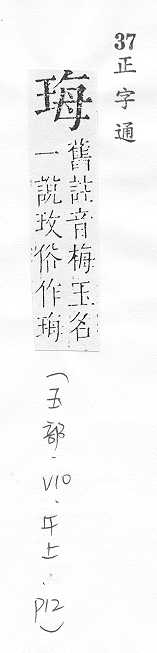 37正字通
珻
舊註音梅玉名
一說玫俗作珻
(五部.V10.午上.P12)